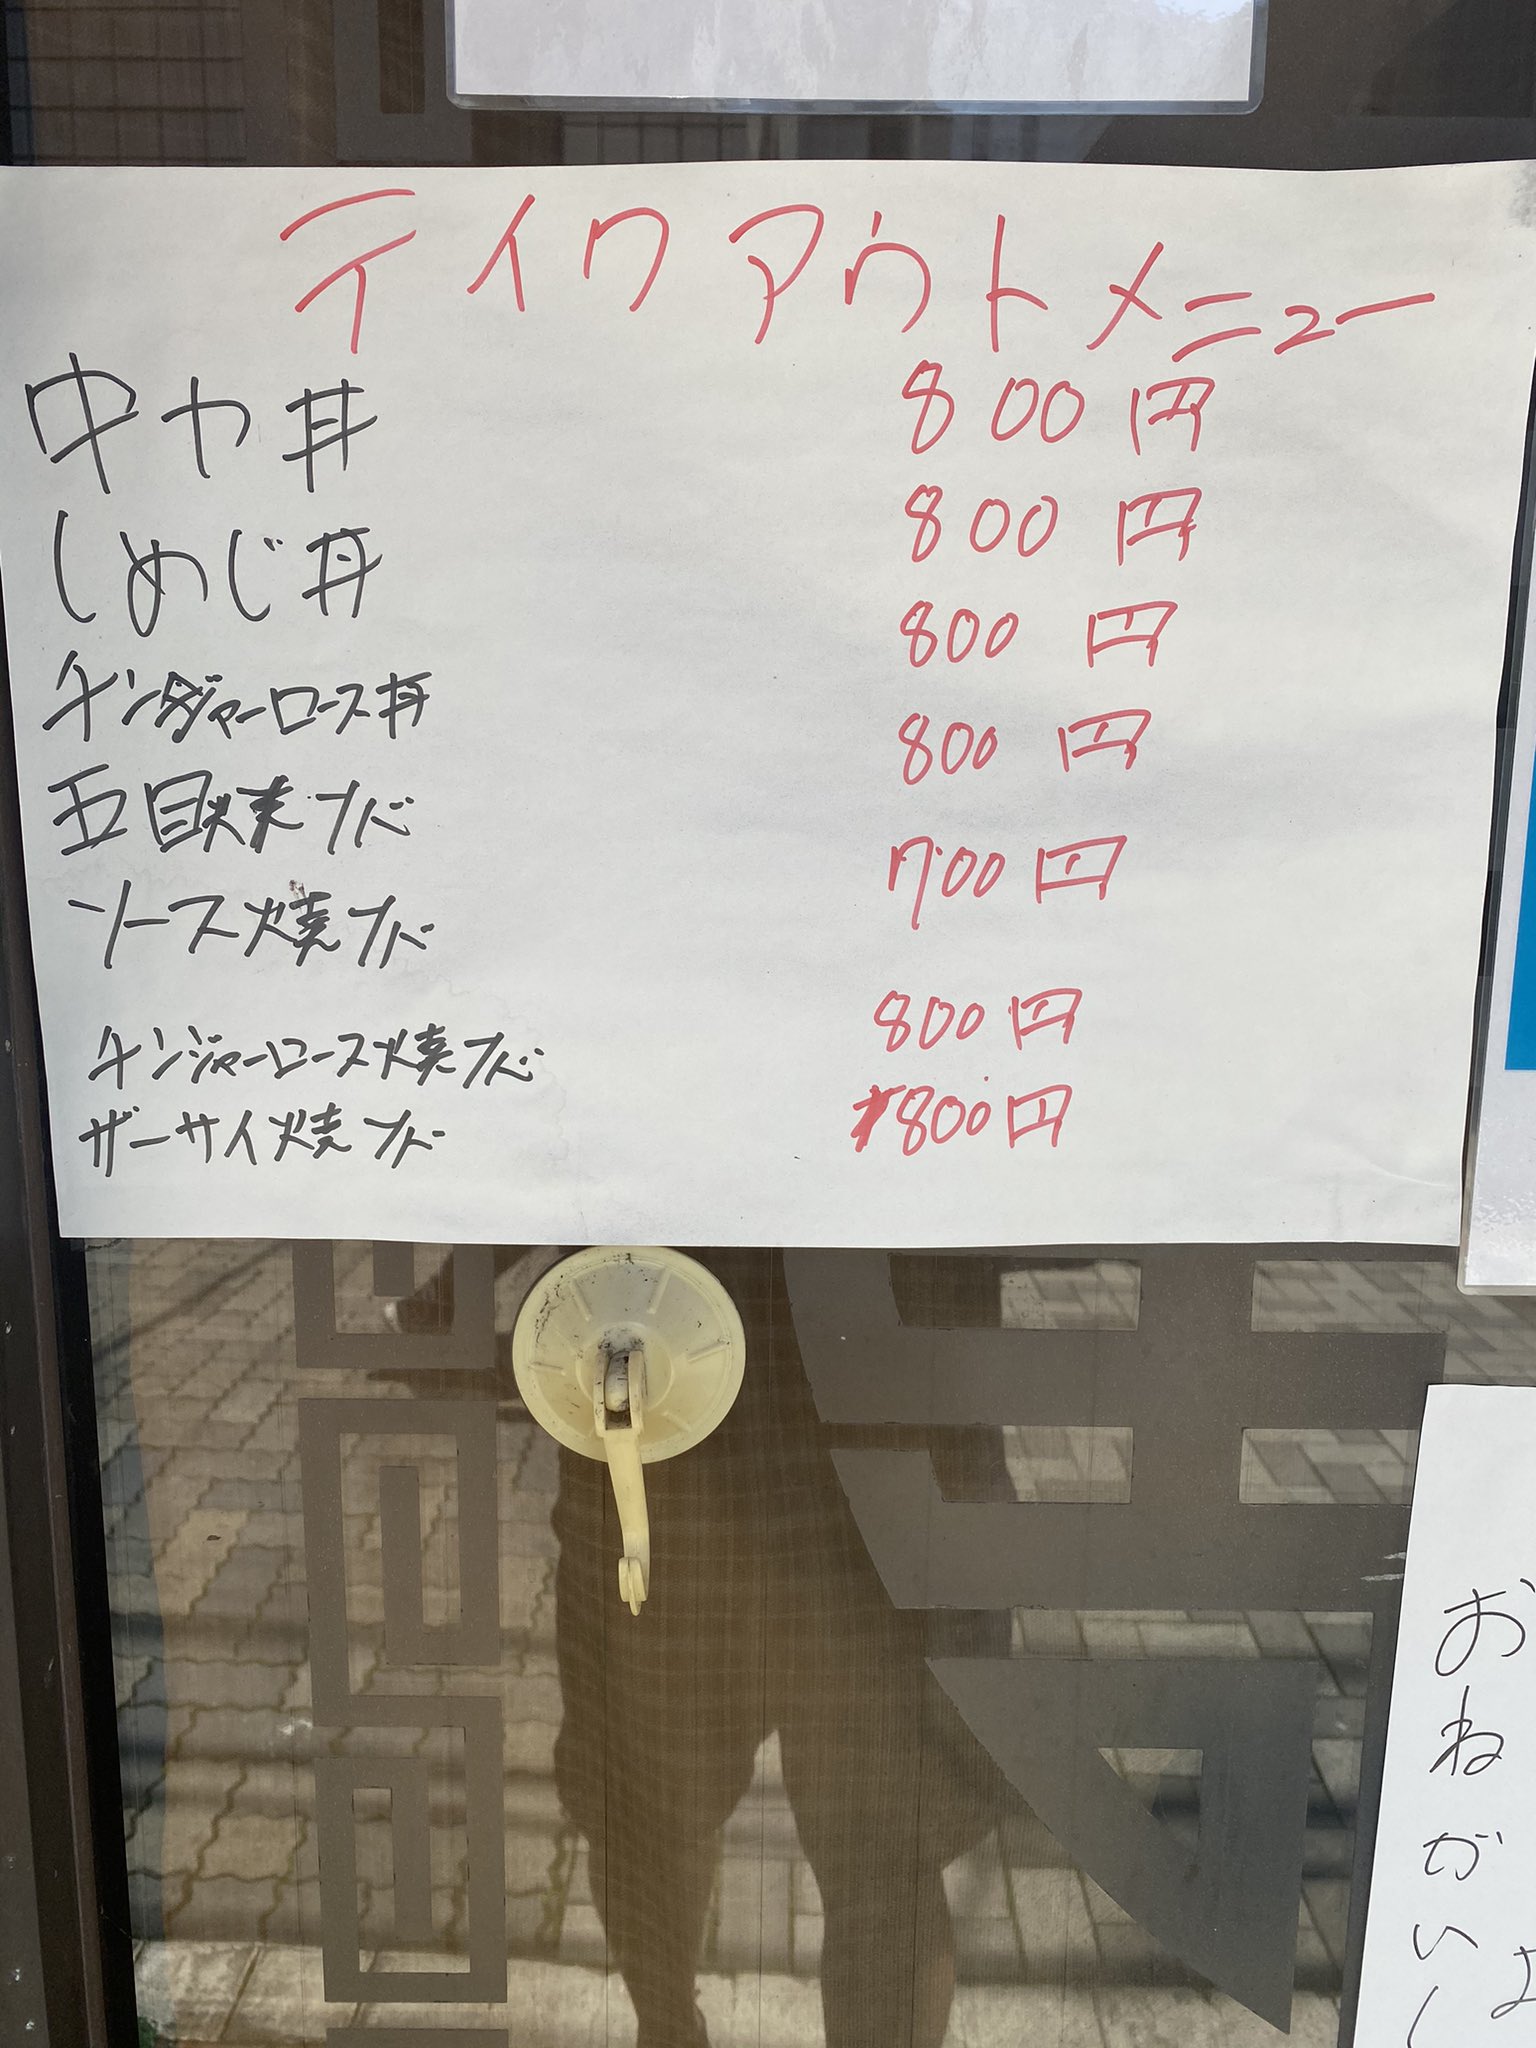 テイクアウトメニュー
中カ丼 800円
しめじ丼 800円
チンジャーロース丼 800円
五目焼ソバ 800円
ソース焼ソバ 700円
チンジャーロース焼ソバ 800円
ザーサイ焼ソバ 800円
おねがいし
よ